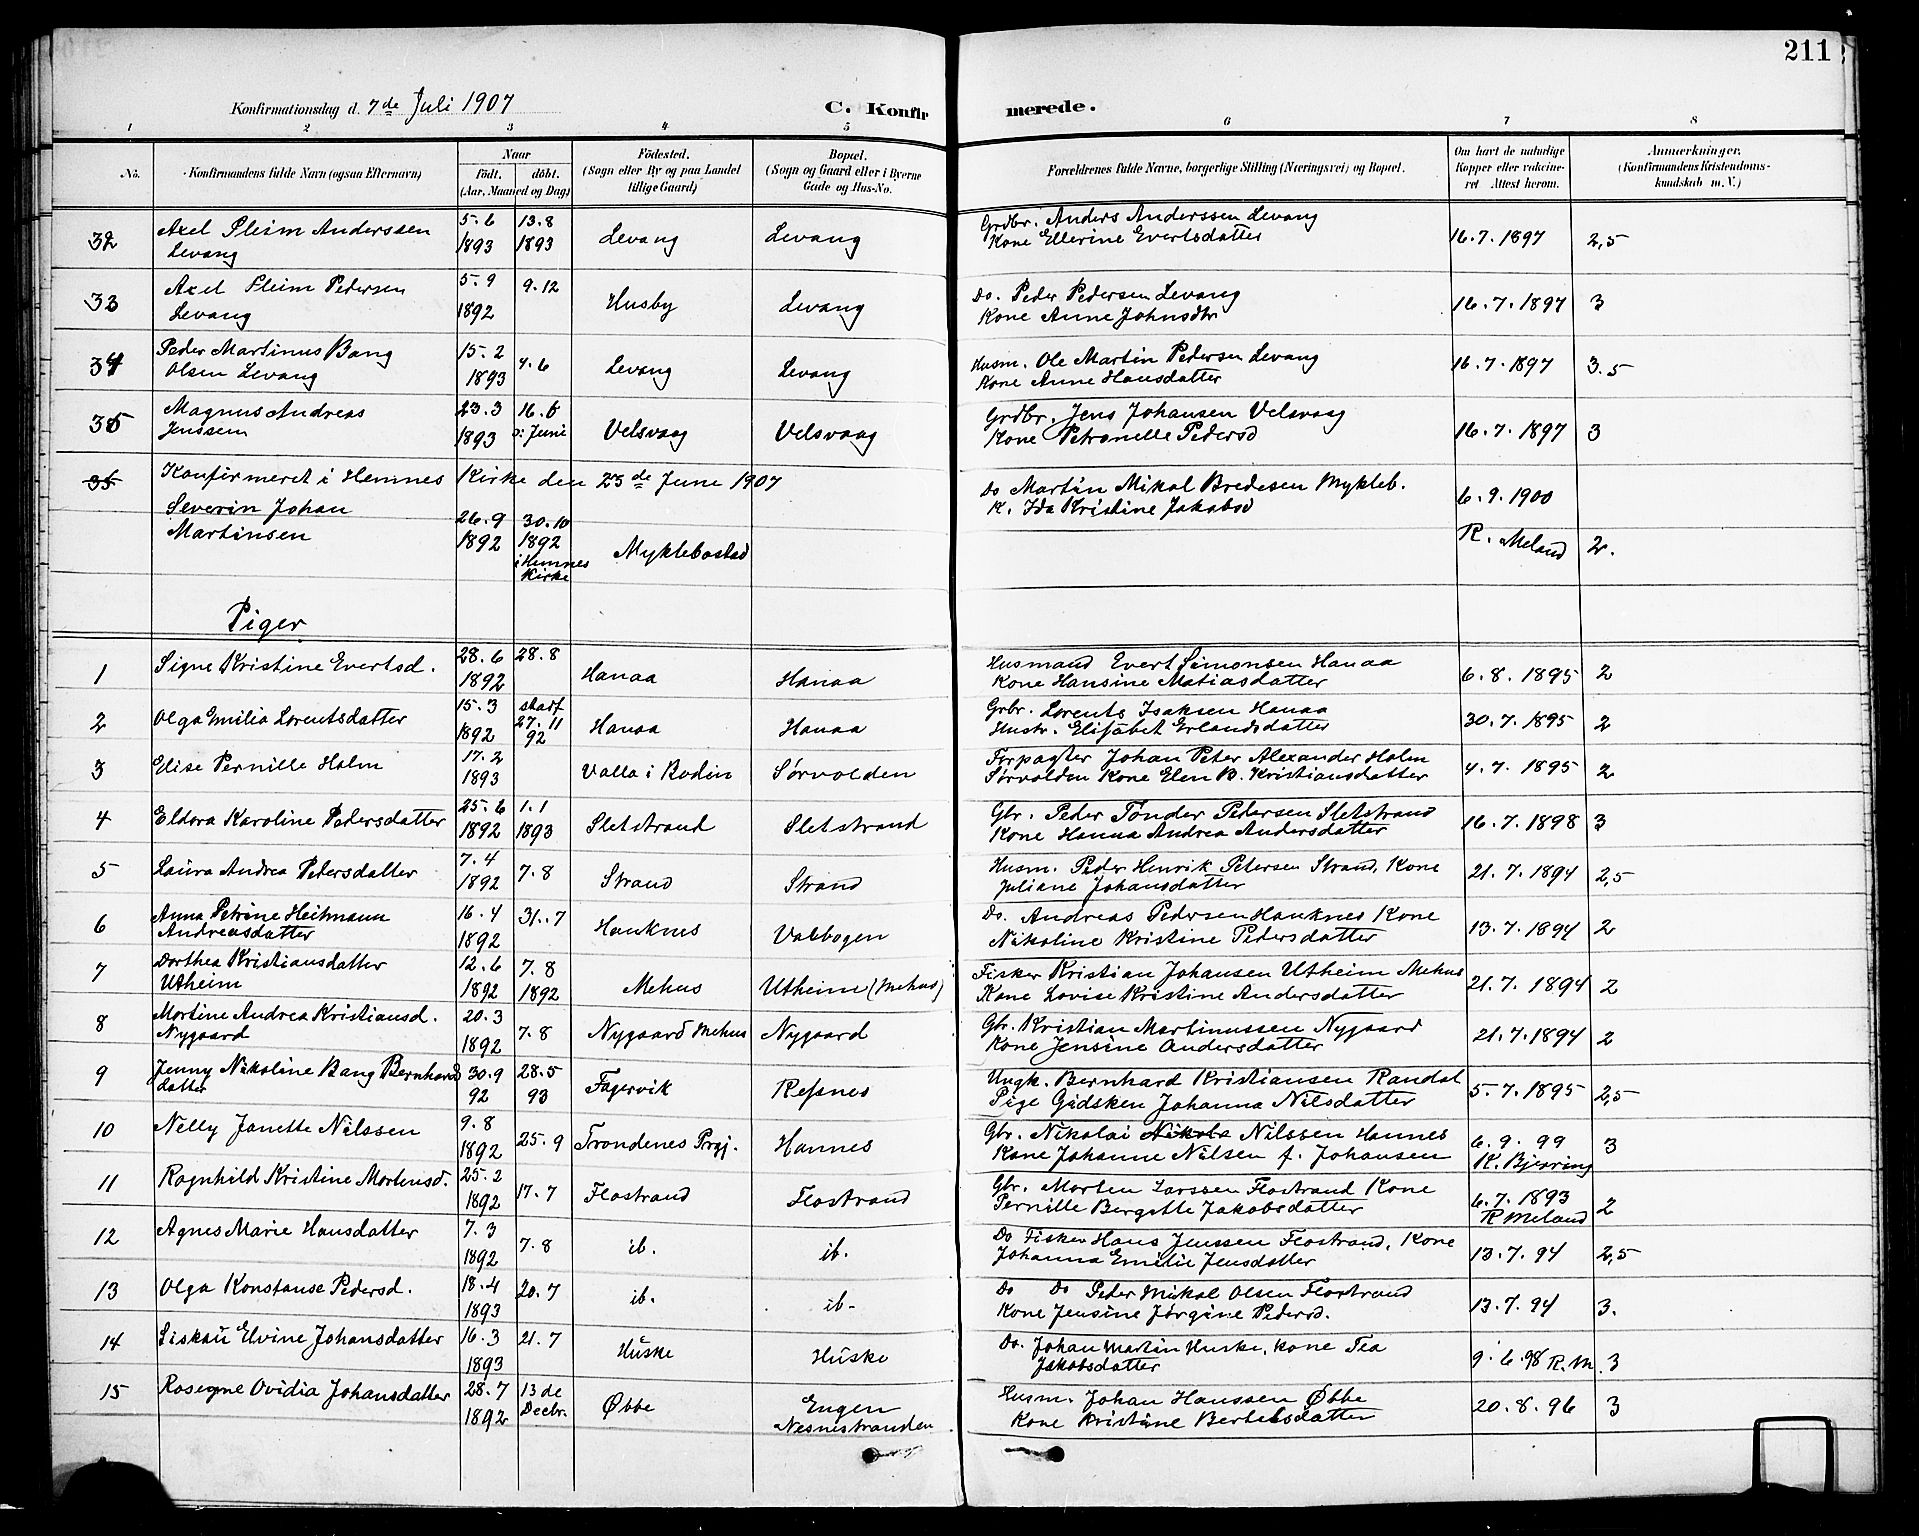 211
Konfirmationsdag d. 7de Juli 1907
C. Konfir merede.
1 2 3 4 5 6 7 8
No. Konfirmandens fulde Navn (ogsaa Efternavn) Naar Født. døbt. (Aar, Maaned og Dag) Fødested. (Sogn eller By og paa Landet tillige Gaard) Bopæl. (Sogn og Gaard eller i Byerne Gade og Hus-No. Forældrenes fulde Navne, borgerlige Stilling (Næringsvei) og Bopæl. Om havt de naturlige Kopper eller vakcineret Attest herom. Anmærkninger. (Konfirmandens Kristendomskundskab m. V.)
32 Axel Pleim Anderssen 5.6 13.8 Levang Levang Grdbr. Anders Anderssen Levang 16.7.1897 2,5
Levang 1893 1893 Kone Ellerine Evertsdatter
33 Axel Pleim Pedersen 5.9 9.12 Husby Levang Do. Peder Pedersen Levang 16.7.1897 3
Levang 1892 Kone Anne Johnsdtr
34 Peder Martinus Bang 15.2 4.6 Levang Levang Husm. Ole Martin Pedersen Levang 16.7.1897 3.5
Olsen Levang 1893 Kone Anne Hansdatter
35 Magnus Andreas 23.3 16.6 Velsvaag Velsvaag Grdbr. Jens Johansen Velsvaag 16.7.1897 3
Jenssen 1893 o: Juni Kone Petronelle Pedersd
35 Konfirmeret i Hemnes Kirke den 23de June 1907 Do Martin Mikal Bredesen Mykleb. 6.9.1900
Severin Johan 26.9 30.10 K. Ida Kristine Jakobsd
Martinsen 1892 1892 i Hemnes Kirke Myklebostad R. Meland 2.
Piger
1 Signe Kristine Evertsd. 28.6 28.8 Hanaa Hanaa Husmand Evert Simonsen Hanaa 6.8.1895 2
1892 Kone Hansine Matiasdatter
2 Olga Emilia Lorentsdatter 15.3 27.11 Hanaa Hanaa Grbr. Lorents Isaksen Hanaa 30.7.1895 2
1892 92 Hustr. Elisabet Erlandsdatter
3 Elise Pernille Holm 17.2 Valla i Bodin Sørvolden Forpagter Johan Peter Alexander Holm 4.7.1895 2
1893 Sørvolden Kone Elen B. Kristiansdatter
4 Eldora Karoline Pedersdatter 25.6 1.1 Sletstrand Sletstrand Gbr. Peder Tønder Pedersen Sletstrand 16.7.1898 3
1892 1893 Kone Hanna Andrea Andersdatter
5 Laura Andrea Pedersdatter 7.4 7.8 Strand Strand Husm. Peder Henrik Petersen Strand, Kone 21.7.1894 2,5
1892 Juliane Johansdatter
6 Anna Petrine Heitmann 16.4 31.7 Hauknes Valbogen Do. Andreas Pedersen Hauknes Kone 13.7.1894 2
Andreasdatter 1892 Nikoline Kristine Pedersdatter
7 Dorthea Kristiansdatter 12.6 7.8 Mehus Utheim (Mehus) Fisker Kristian Johansen Utheim Mehus 21.7.1894 2
Utheim 1892 1892 Kone Lovise Kristine Andersdatter
8 Martine Andrea Kristiansd. 20.3 7.8 Nygaard Mehus Nygaard Gbr. Kristian Martinussen Nygaard 21.7.1894 2
Nygaard 1892 Kone Jensine Andersdatter
9 Jenny Nikoline Bang Bernhard 30.9 28.5 Fagervik Resnes Ungk. Bernhard Kristiansen Randal 5.7.1895 2,5
datter 92 93 Pige Gidsken Johanna Nilsdatter
10 Nelly Janette Nilssen 9.8 25.9 Trondenes Prgj. Hannes Gbr. Nikolai Nikola Nilssen Hannes 6.9.99 3
1892 Kone Johanne Nilsen f. Johansen K. Bjerring
11 Ragnhild Kristine Mortensd. 25.2 17.7 Flostrand Flostrand Gbr. Morten Larssen Flostrand Kone 6.7.1893 2
1892 Pernille Bergitte Jakobsdatter R Meland
12 Agnes Marie Hansdatter 7.3 7.8 ib. ib. Do Fisker Hans Jenssen Flostrand, Kone 13.7.94 2,5
1892 Johanna Emilie Jensdatter
13 Olga Konstanse Pedersd. 18.4 20.7 ib. ib- Do Do Peder Mikal Olsen Flostrand 13.7.94 3.
1893 Kone Jensine Jørgine Pedersd.
14 Liskau Elvine Johansdatter 16.3 21.7 Huske Huske Do. Johan Martin Huske, kone Tea 9.6.98 R.M. 3
1893 Jakobsdatter
15 Ovidia Johansdatter 28.7 13de Øbbe Engen Husm. Johan Hanssen Øbbe 20.8.96 3
1892 Decbr. Nesnestranden Kone Kristine Bertelsdatter